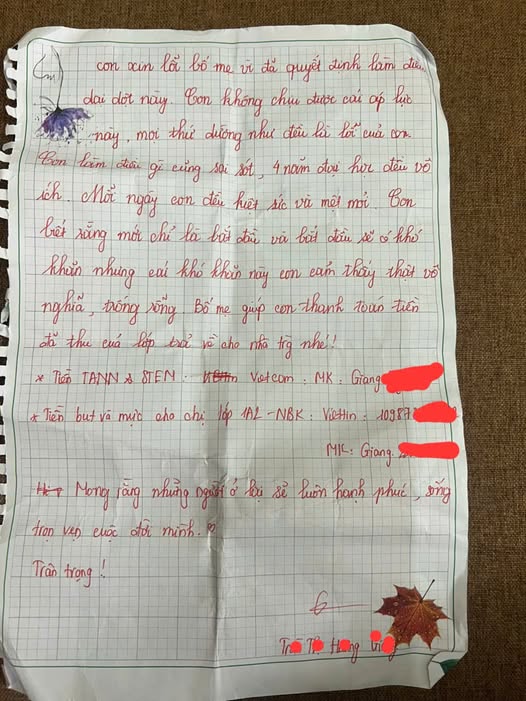 con xin lỗi bố mẹ vì đã quyết định làm điều
dại dột này. Con không chịu được cái áp lực
này, mọi thứ dường như đều là lỗi của con.
Con làm điều gì cũng sai sót, 4 năm đại học đều vô
ích. Mỗi ngày con đều kiệt sức và mệt mỏi. Con
biết rằng mới chỉ là bắt đầu và bắt đầu sẽ có khó
khăn nhưng cái khó khăn này con cảm thấy thật vô
nghĩa, trống rỗng. Bố mẹ giúp con thanh toán tiền
đã thu của lớp trả về cho nhà trg nhé!
* Tiền TANN & STEN: Vietcom: MK: Giang
* Tiền bút và mực cho chị lớp 1A2-NBK: Viettin: 10987
MK: Giang
Mong rằng những người ở lại sẽ luôn hạnh phúc, sống
trọn vẹn cuộc đời mình.
Trân trọng!